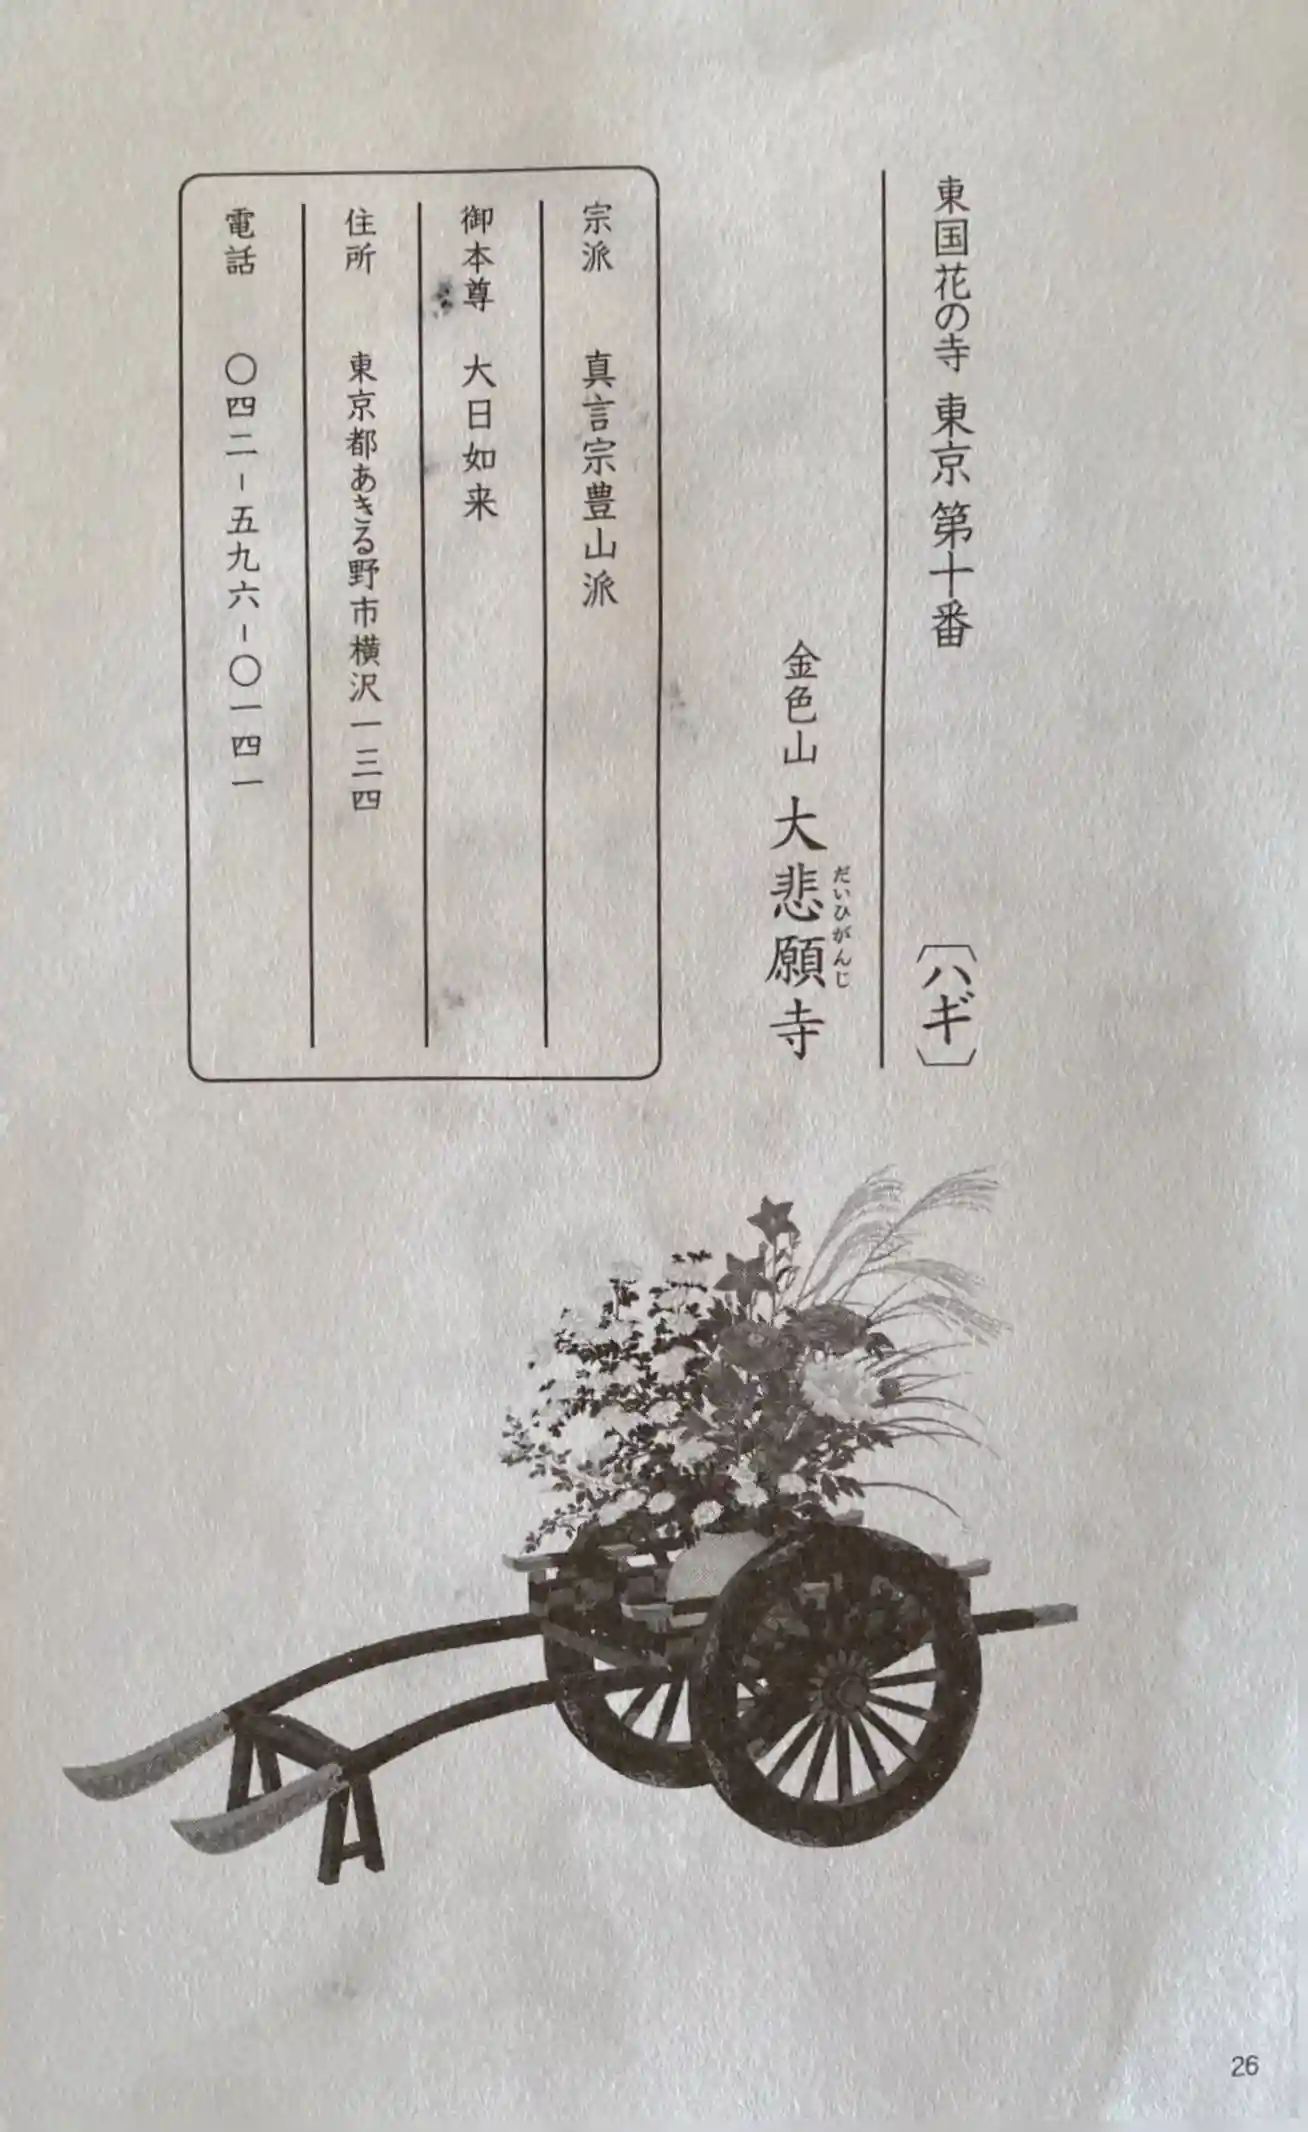 東国花の寺 東京 第十番 〔ハギ〕
金色山 大悲願寺
だいひがんじ
宗派 真言宗豊山派
御本尊 大日如来
住所 東京都あきる野市横沢一三四
電話 〇四二-五九六-〇一四一
26